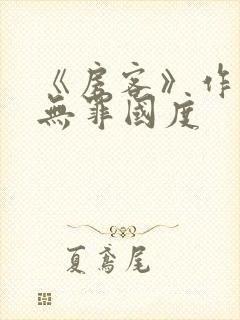 《房客》作
無罪國度
夏鳶尾